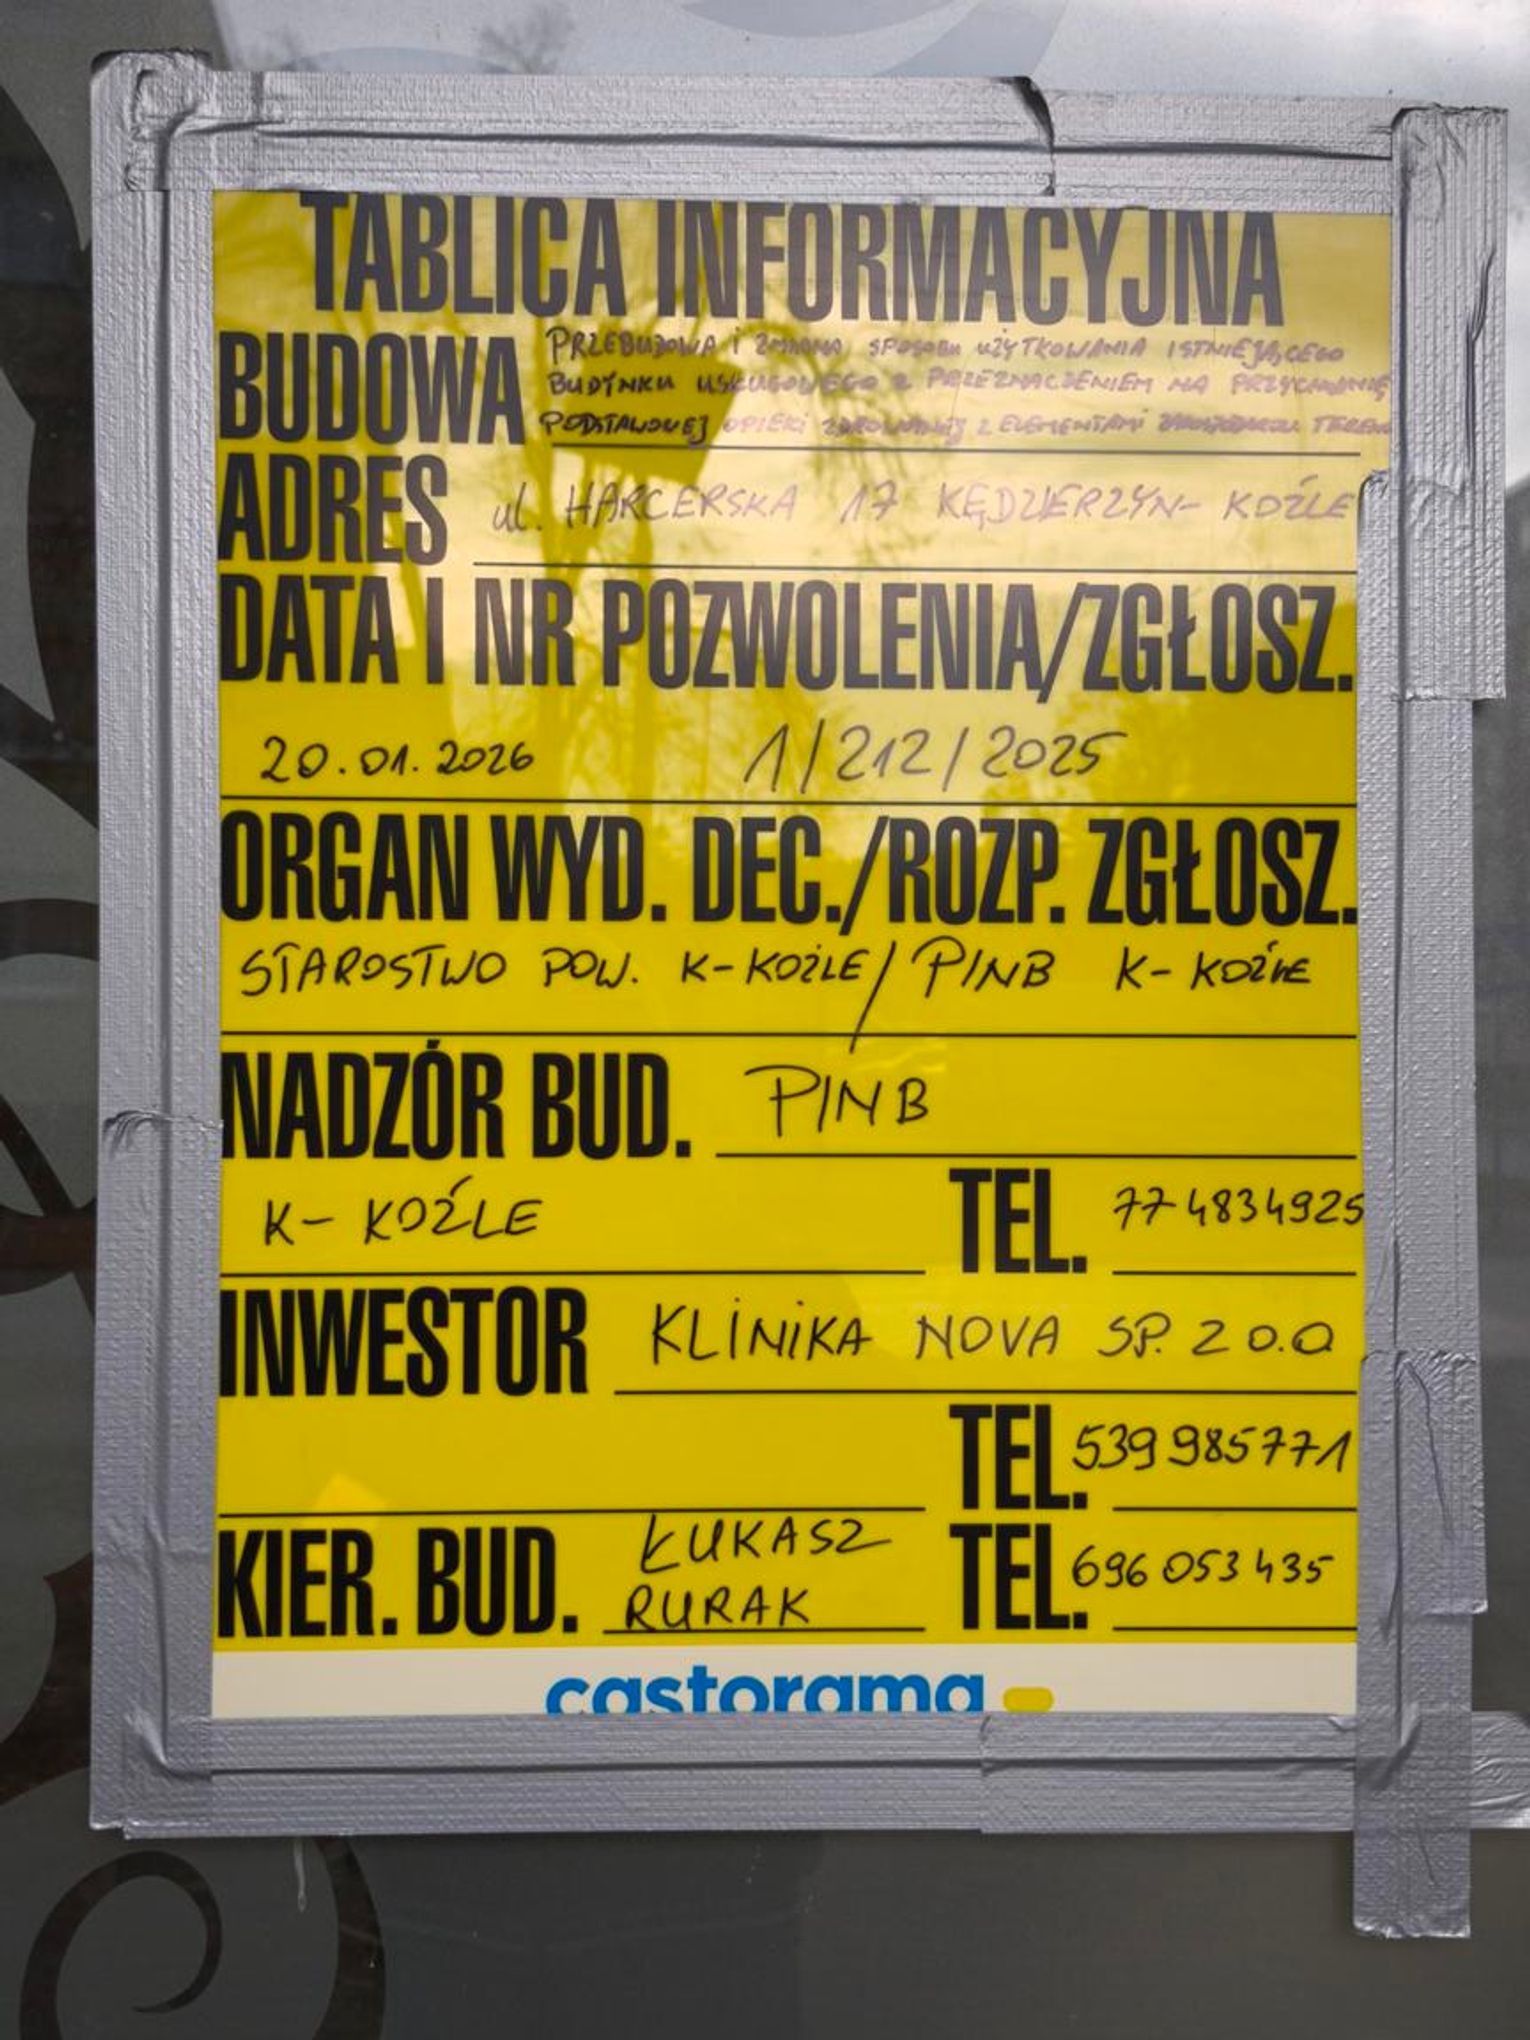 TABLICA INFORMACYJNA
BUDOWA PRZEBUDOWA i ZMIANA SPOSOBU UŻYTKOWANIA ISTNIEJĄCEGO
BUDYNKU USŁUGOWEGO Z PRZEZNACZENIEM NA PRZYCHODNIĘ
PODSTAWOWEJ OPIEKI ZDROWOTNEJ Z ELEMENTAMI TERENU
ADRES ul. HARCERSKA 17 KĘDZIERZYN- KOŹLE
DATA I NR POZWOLENIA/ZGŁOSZ.
20.01.2026 1/212/2025
ORGAN WYD. DEC./ROZP. ZGŁOSZ.
STAROSTWO POW. K-KOŹLE/ PINB K- KOŹLE
NADZÓR BUD. PINB
K- KOŹLE TEL. 774834925
INWESTOR KLINIKA NOVA SP. Z O.O
TEL. 539 985771
KIER. BUD. ŁUKASZ
RURAK TEL. 696 053 435
castorama